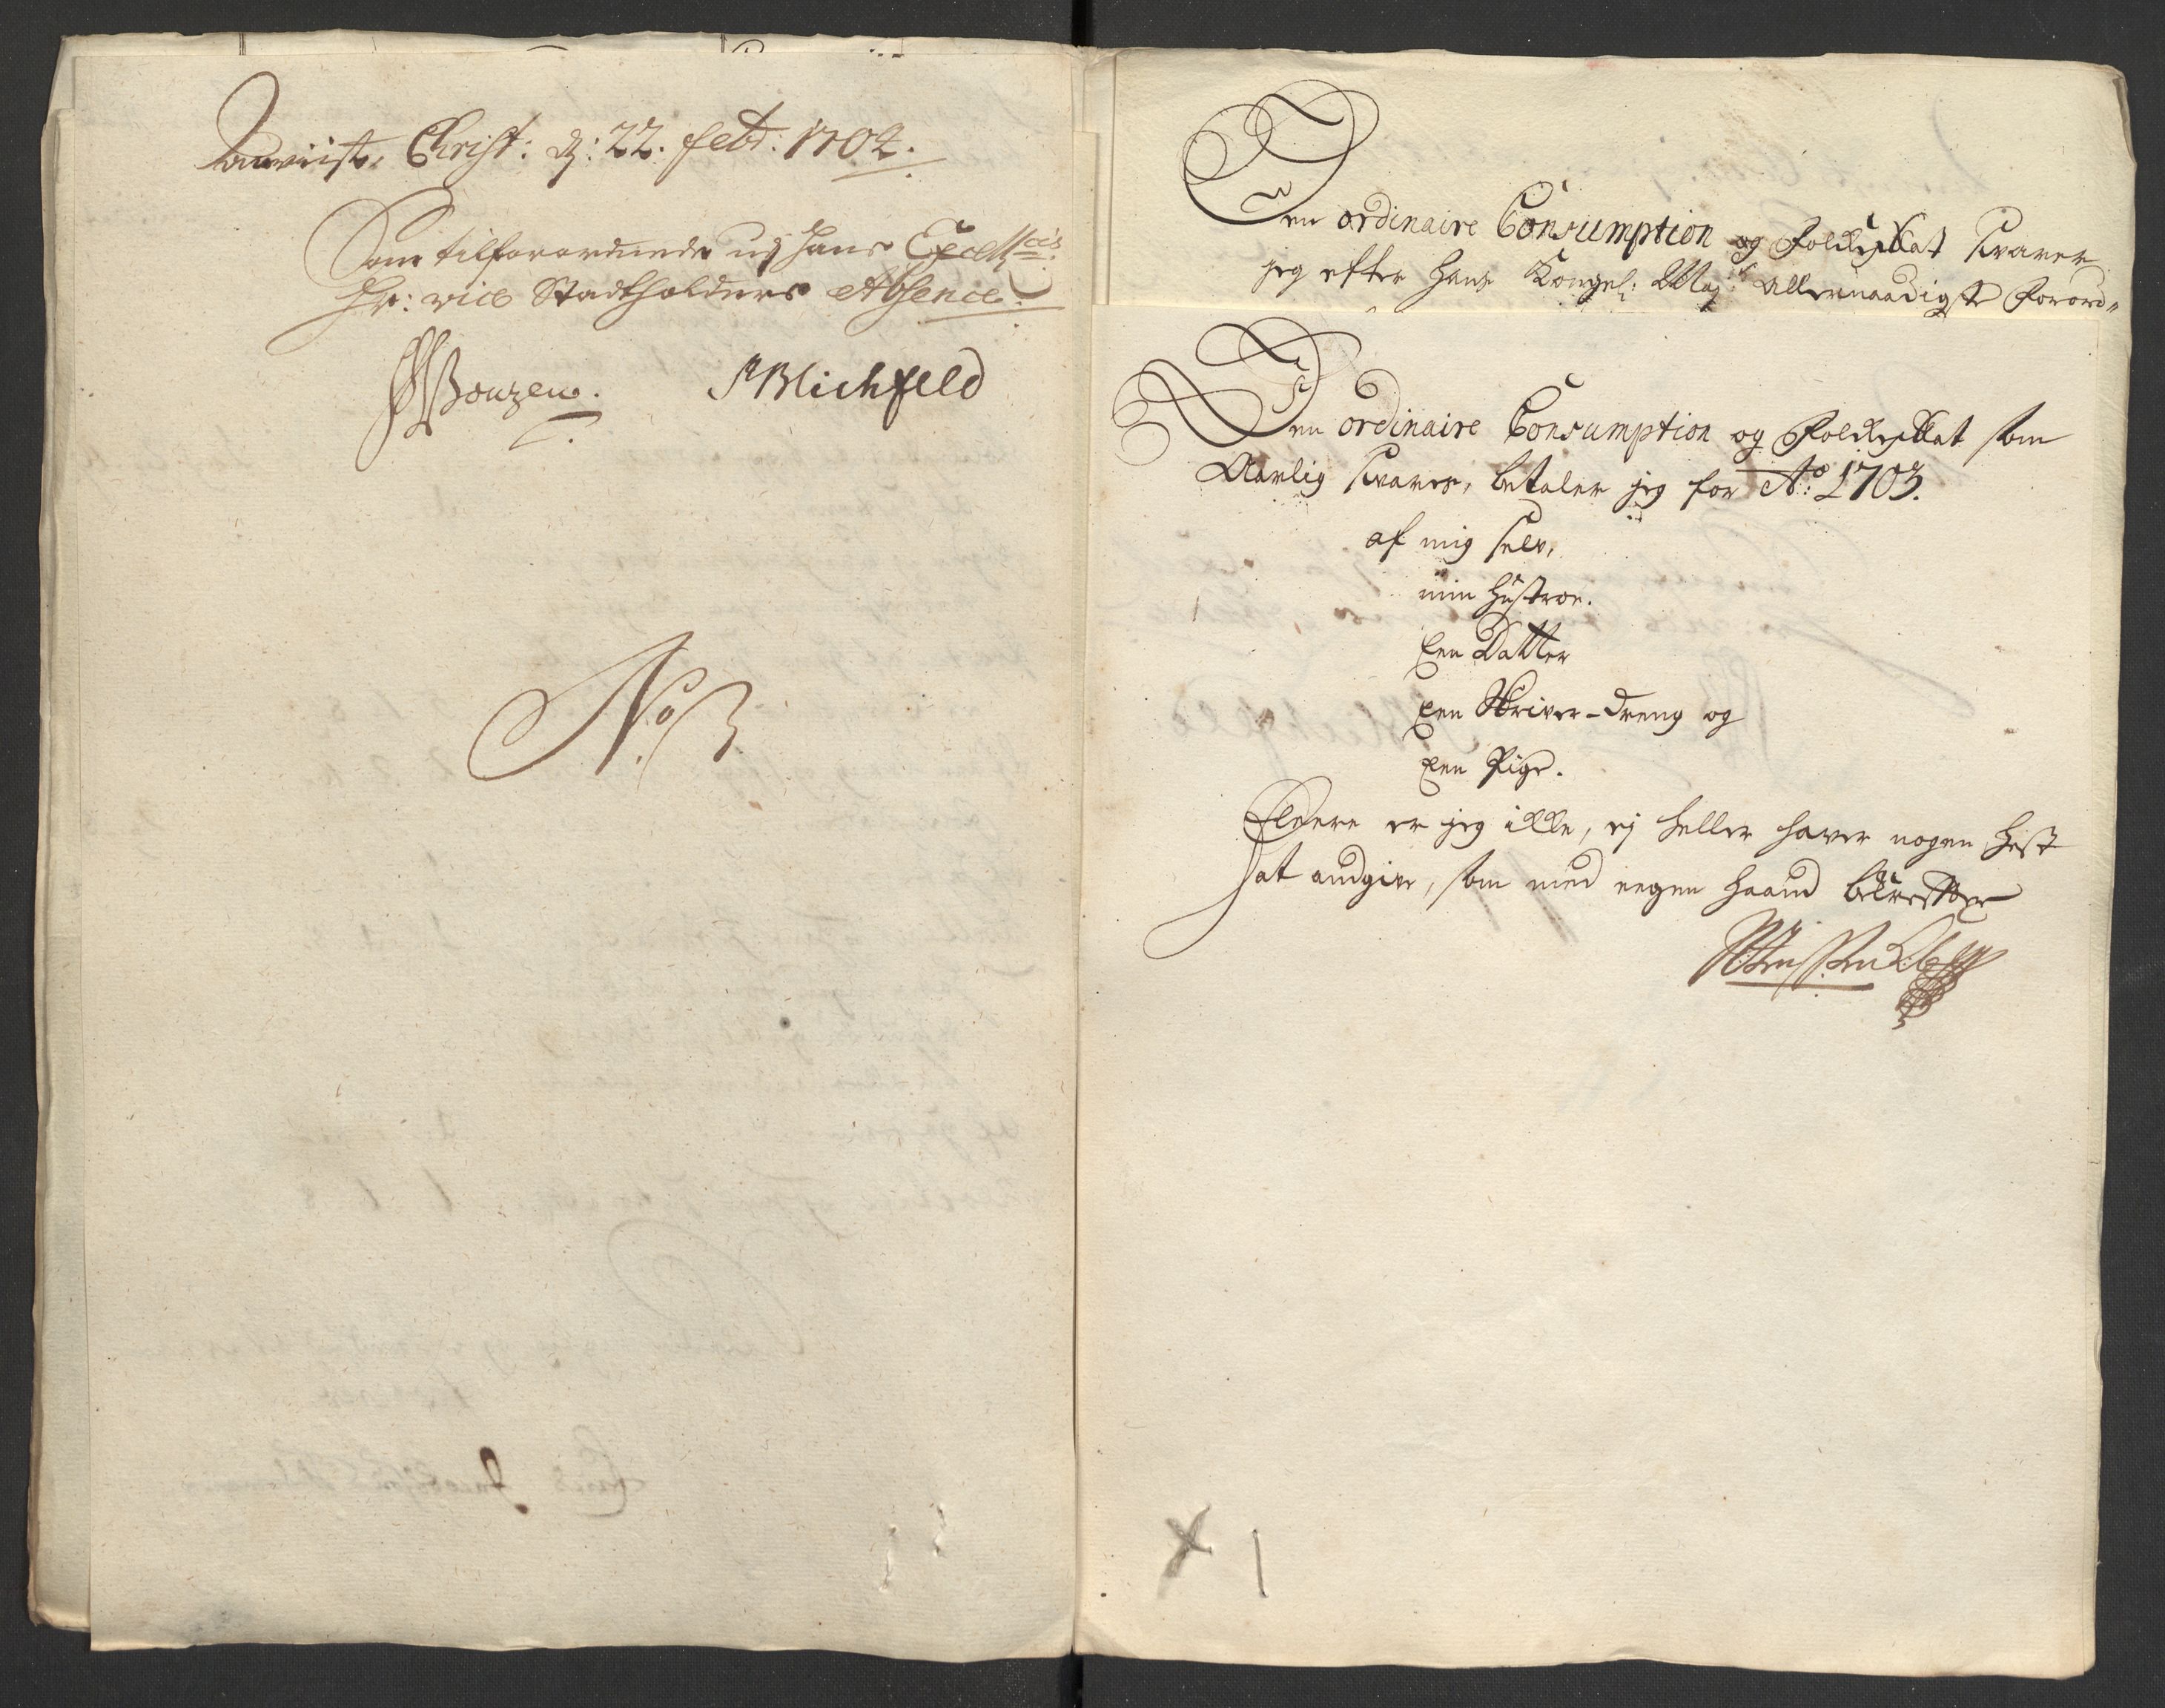 Anviist, Christ: d: 22. febr: 1704.
Som tilforordnede udj Hans Excell<sup>cis</sup>
Hr: vice Stadtholders Absence.
Bonzen. Blichfeld
N<sup>o</sup> 3
Den ordinaire Consumption og Folkeskat svarer
jeg efter Hans Kongel: May: allernaadigste Forord„
Den ordinaire Consumption og Folkeskat som
Aarlig svares, betaler jeg for A<sup>o</sup>: 1703.
af mig self,
min Hustroe.
Een Datter
Een Skriver-dreng og
Een Pige.
Fleere er jeg ikke, ej heller haver nogen Hest
at andgive, som med eegen Haand bekreftter